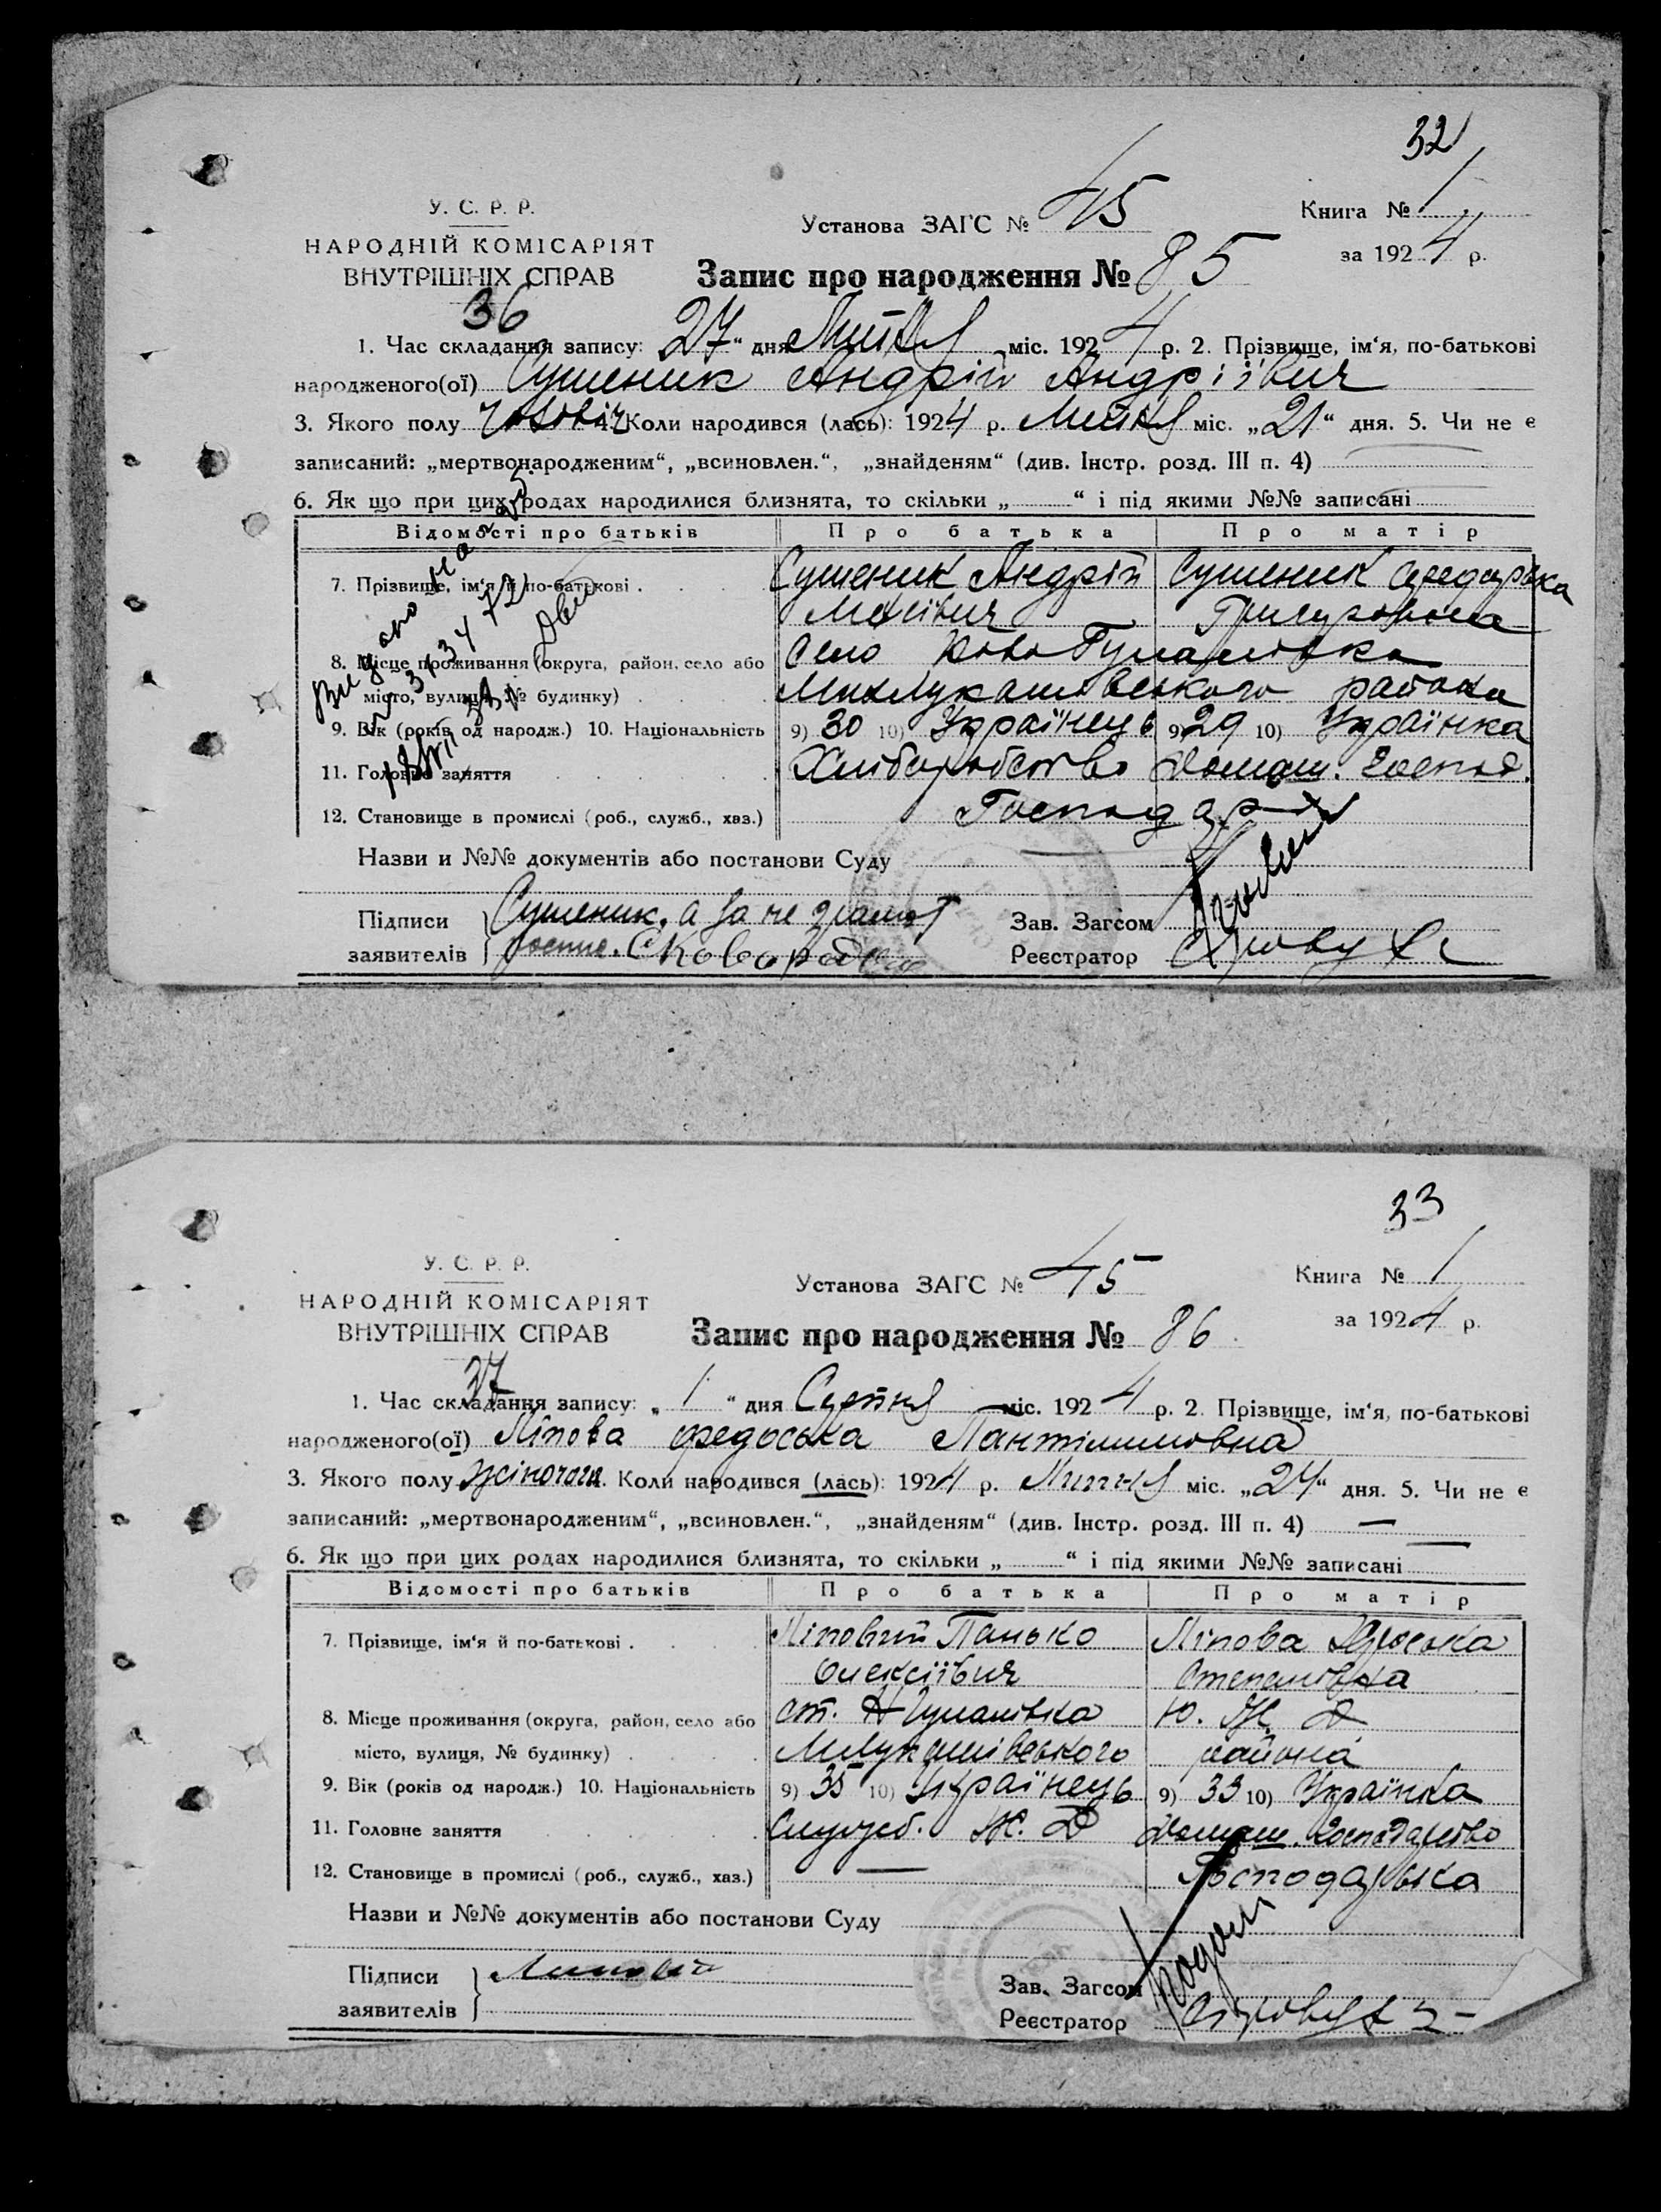 32
У. С. Р. Р.
НАРОДНІЙ КОМІСАРІЯТ
ВНУТРІШНІХ СПРАВ
Установа ЗАГС № 45
Книга № 1
за 1924 р.
Запис про народження № 85
36
1. Час складання запису: 27 " дня Липня міс. 1924 р. 2. Прізвище, ім'я, по-батькові
народженого(ої) Сушеник Андрій Андріївич
3. Якого полу 4. Коли народився (лась): 1924 р. Липня міс. „21" дня. 5. Чи не є
записаний: „мертвонародженим", „всиновлен.", „знайденям" (див. Інстр. розд. III п. 4)
6. Як що при цих родах народилися близнята, то скільки „ " і під якими №№ записані
Відомості про батьків Про батька Про матір
7. Прізвище, ім'я й по-батькові . Сушеник Андрій Сушеник
Григоровна
8. Місце проживання (округа, район, село або Село Ново Гупалівка
місто, вулиця, № будинку) района
9. Вік (років од народж.) 10. Національність 9) 30 10) Українець 9) 29 10) Українка
11. Головне заняття Хліборобство Домаш. господ.
12. Становище в промислі (роб., служб., хаз.) Господарі
Назви и №№ документів або постанови Суду
Підписи Сушеник, а за не грамот
заявителів роспис. Сковорода
Зав. Загсом
Реєстратор
33
У. С. Р. Р.
НАРОДНІЙ КОМІСАРІЯТ
ВНУТРІШНІХ СПРАВ
Установа ЗАГС № 45
Книга № 1
за 1924 р.
Запис про народження № 86
37
1. Час складання запису: „ 1 " дня Серпня міс. 1924 р. 2. Прізвище, ім'я, по-батькові
народженого(ої) Ліпова Федоська Пантілимовна
3. Якого полу жіночого 4. Коли народився (лась): 1924 р. Липня міс. „24" дня. 5. Чи не є
записаний: „мертвонародженим", „всиновлен.", „знайденям" (див. Інстр. розд. III п. 4) —
6. Як що при цих родах народилися близнята, то скільки „ " і під якими №№ записані —
Відомості про батьків Про батька Про матір
7. Прізвище, ім'я й по-батькові . Ліповий Панько Ліпова
Олексіївич Степанівна
8. Місце проживання (округа, район, село або ст. Н Гупалівка Ю. Ж. Д
місто, вулиця, № будинку) . района
9. Вік (років од народж.) 10. Національність 9) 35 10) Українець 9) 33 10) Українка
11. Головне заняття Служб. Ж. Д Домаш. господарство
12. Становище в промислі (роб., служб., хаз.) — Господарька
Назви и №№ документів або постанови Суду
Підписи
заявителів
Зав. Загсом
Реєстратор